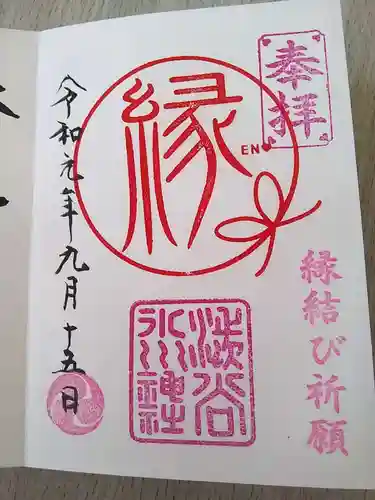 奉拝
縁結び祈願
縁
EN
渋谷
氷川神社
令和元年九月十五日